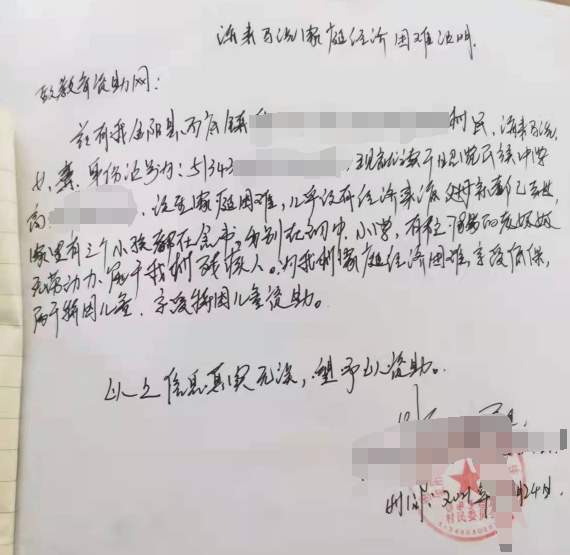 海来万说家庭经济困难证明.
致教育资助网:
兹有我金阳县丙底镇 村民,海来万说,
女,彝,身份证号为:51343 ,现就读于 民族中学
高 ,该生家庭困难,几乎没有经济来源, 父亲已去世,
家里有三个小孩都在念书,分别在初中,小学,有 的
无劳动力,属于我村残疾人。为我村家庭经济困难,享受低保,
属于特困儿童,享受特困儿童资助。
以上信息真实无误,望予以资助。
时间:2021年 月24日
村民委员会